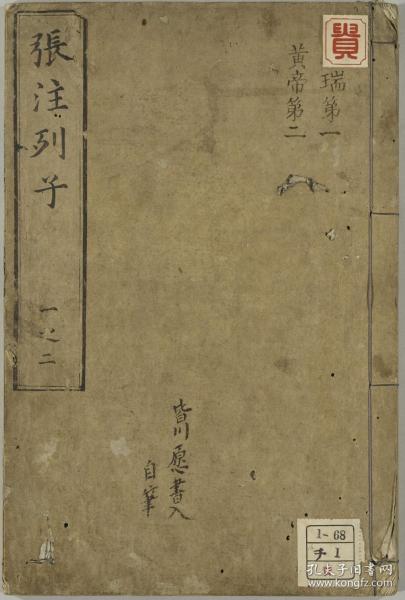 張注列子
一之二
貴
瑞第一
黄帝第二
皆川愿書入
自筆
1-68
チ 1
孔夫子旧书网
www.kongfz.com